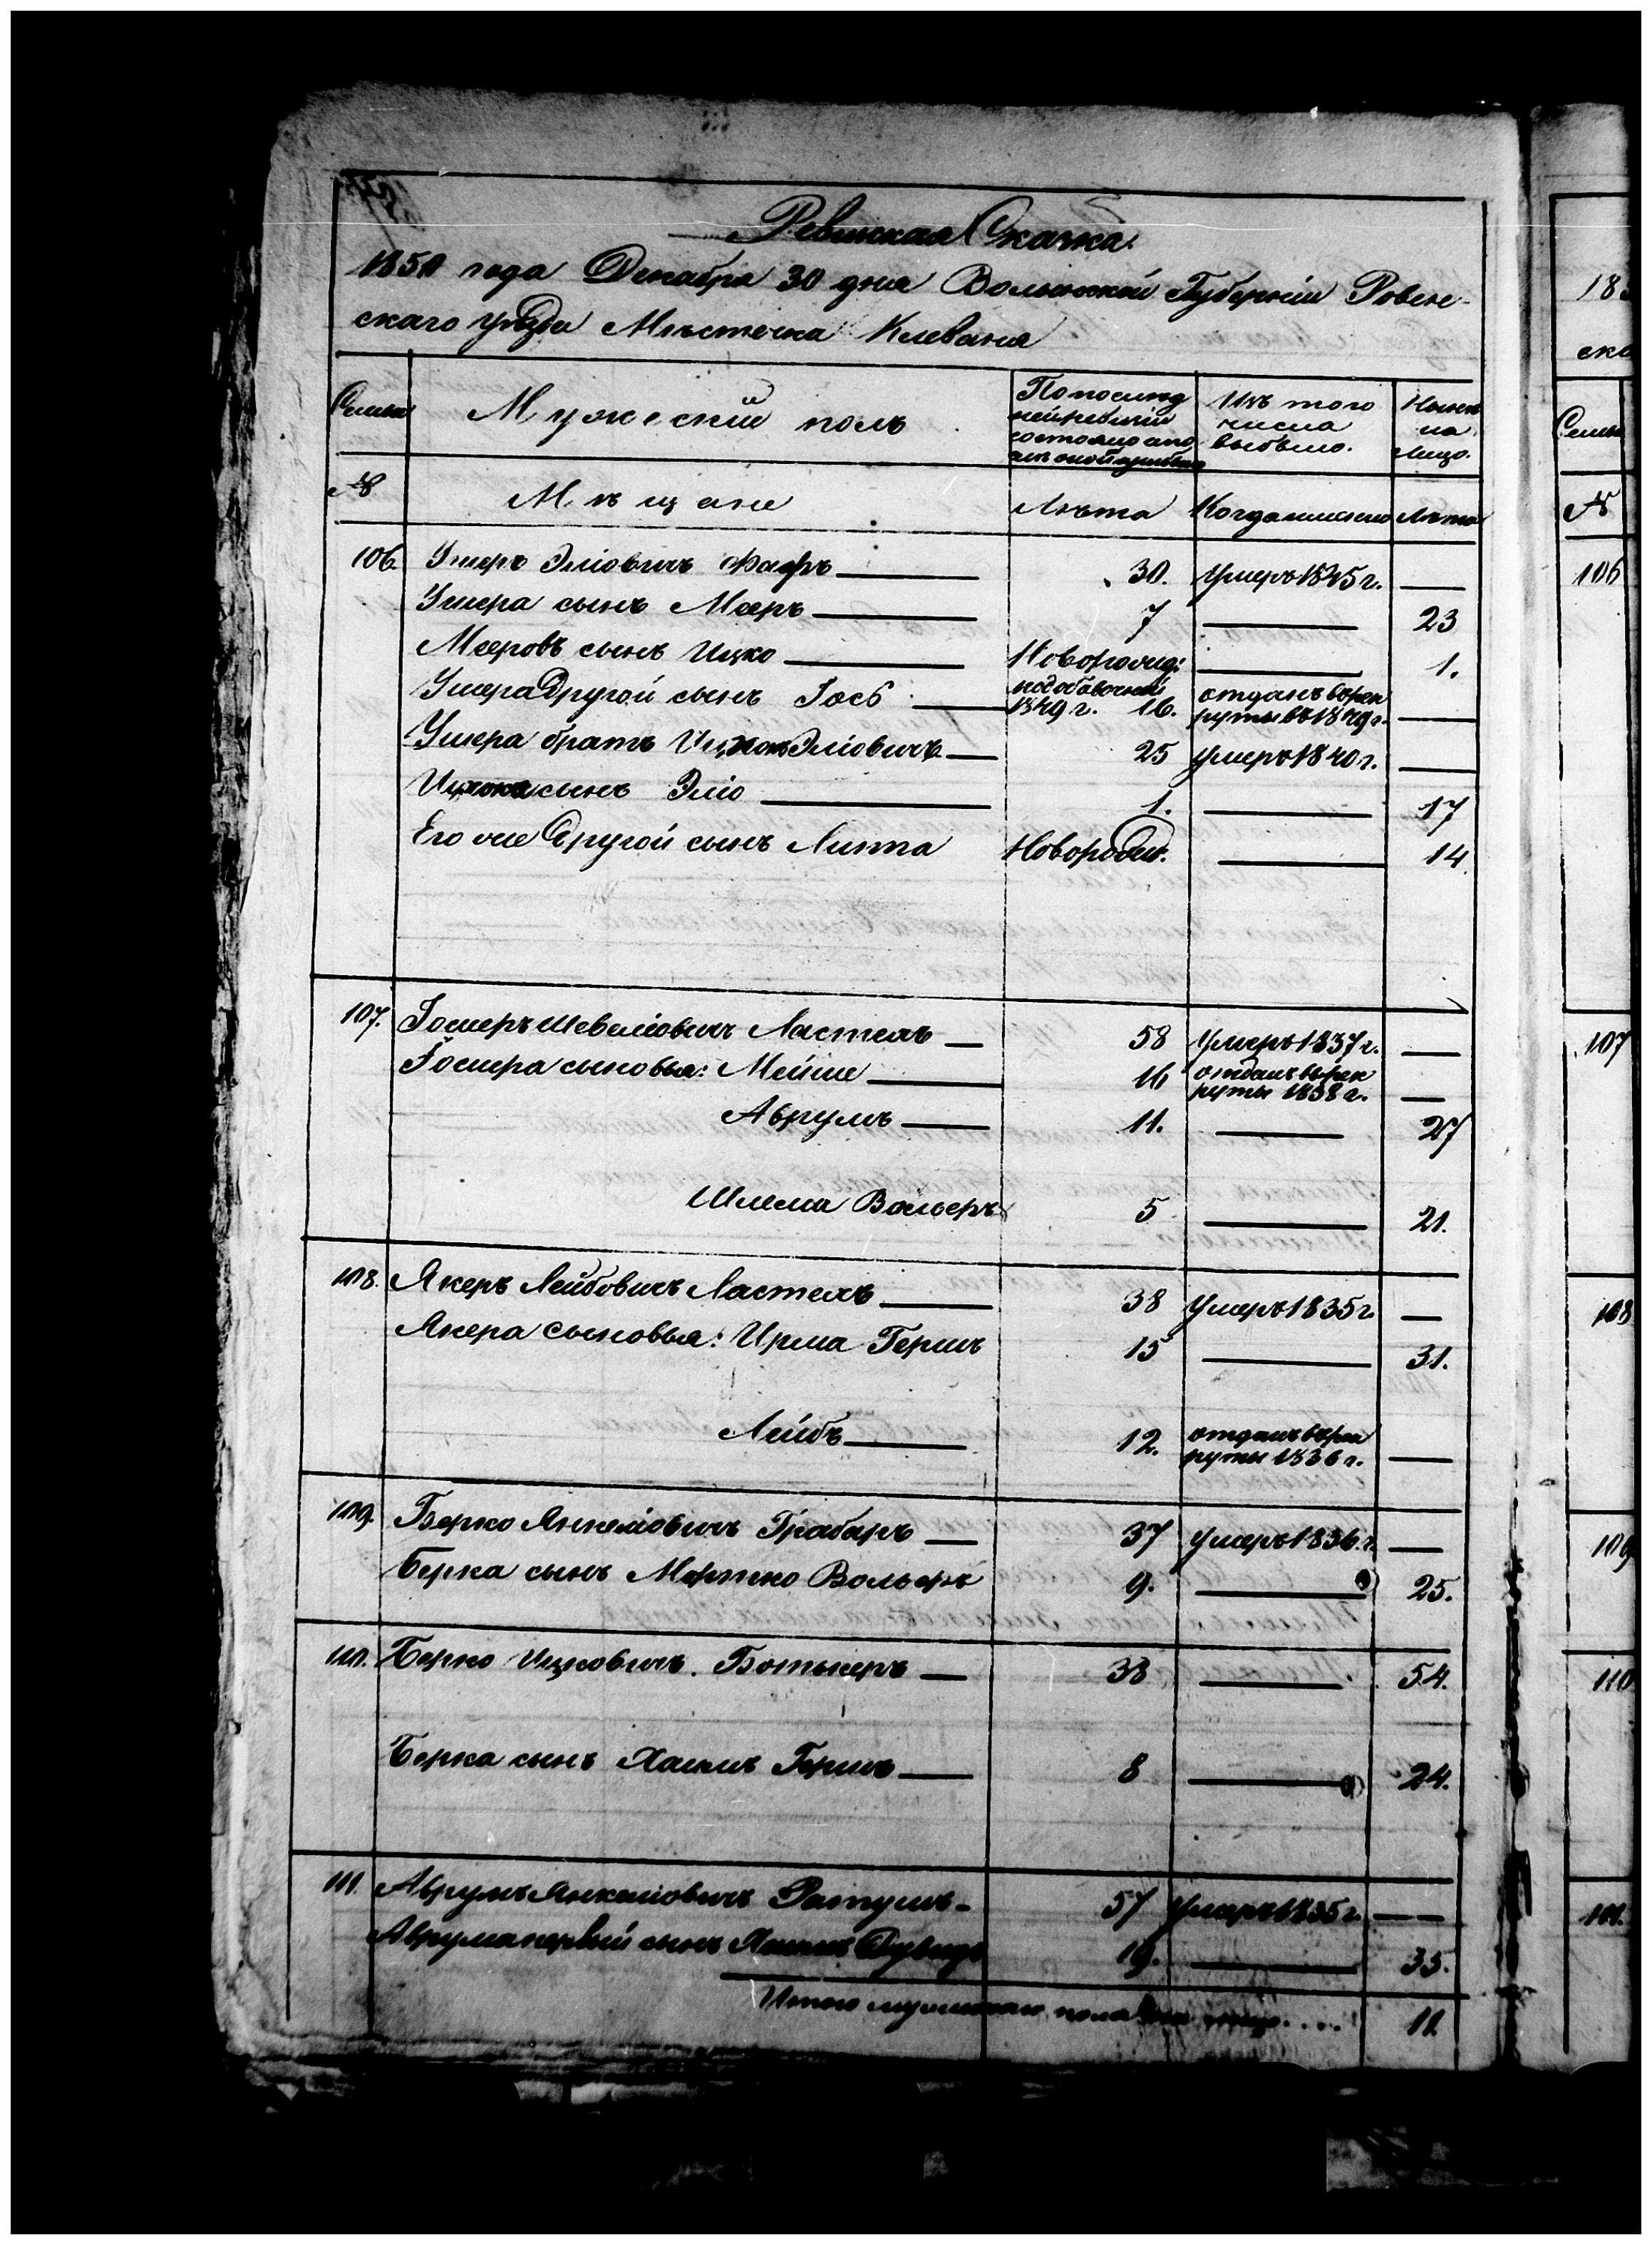 Ревизская Сказка.
1850 года Декабря 30 дня Волынской Губерніи Ровен-
скаго уѣзда Мѣстечка Клеваня
Семьи
Мужескій полъ
По послѣд
ней ревизіи
состояло и по
слѣ оной прибыло
Изъ того
числа
выбыло.
Нынѣ
на
лицо.
№
Мѣщане
Лѣта
Когда именно
Лѣта
106. Ушеръ Эліовичъ Фафръ 30. умеръ 1845 г. —
Ушера сынъ Мееръ 7 — 23
Мееровъ сынъ Ицко Новорожд: — 1.
Ушера Другой сынъ Іось по добавочной 1849 г. 16. отданъ въ рек
руты въ 1849 г. —
Ушера братъ Ицко Эліовичъ 25 умеръ 1840 г. —
Ицка сынъ Эліо 1. — 17
Его же Другой сынъ Липа Новорожд. — 14.
107. Гошеръ Шевеліовичъ Ластехъ 58 умеръ 1837 г. —
Гошера сыновья: Мейше 16 отданъ въ рек
руты 1838 г. —
Аврумъ 11. — 27
Шлема Вольеръ 5 — 21.
108. Якеръ Лейбовичъ Ластехъ 38 умеръ 1835 г —
Якера сыновья: Ирма Гершъ 15 — 31.
Лейбъ 12. отданъ въ рек
руты 1836 г. —
109. Берко Янкеліовичъ Грабаръ 37 умеръ 1836 г. —
Берка сынъ Мортко Вольфъ 9. — 25.
110. Берко Ицковичъ. Ботькеръ 38 — 54.
Берка сынъ Хаимъ Гершъ 8 — 24.
111. Аврумъ Янкеліовичъ Ратушъ 57 умеръ 1835 г. —
Аврума первый сынъ Хаимъ Дувидъ 19. — 35.
Итого мужескаго пола на лицо.... 11
18
ска
Семьи
№
106
107
108
109
110
111.